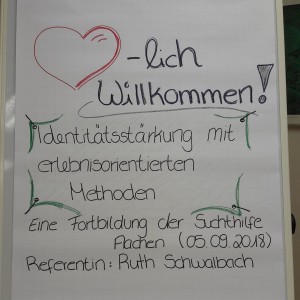 -lich
Willkommen!
Identitätsstärkung mit
erlebnisorientierten
Methoden
Eine Fortbildung der Suchthilfe
Aachen (05.09.2018)
Referentin: Ruth Schwalbach